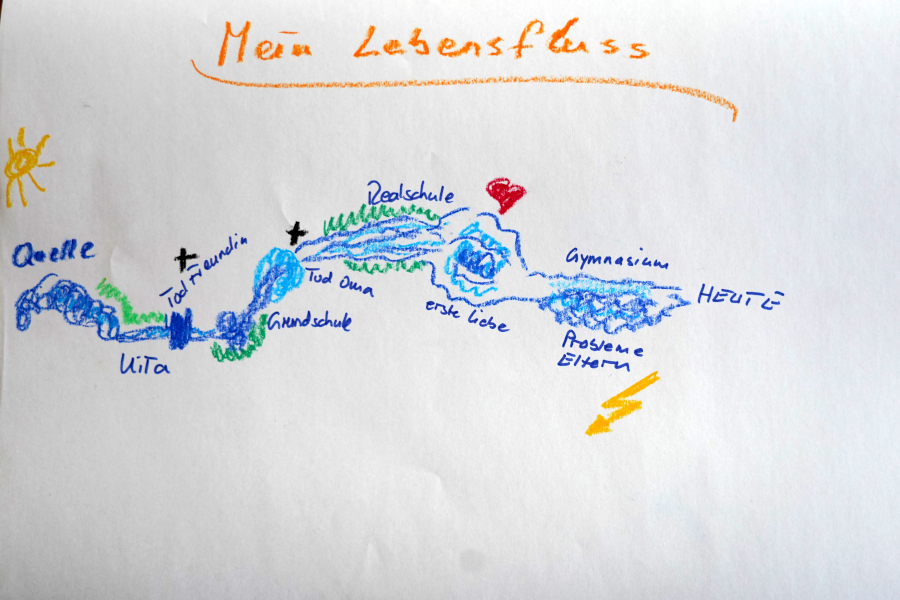 Mein Lebensfluss
Quelle
KiTa
Tod Freundin
Grundschule
Tod Oma
Realschule
erste Liebe
Gymnasium
Probleme
Eltern
HEUTE